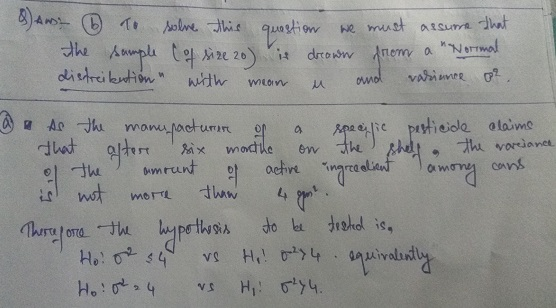 Q) Ans:- (b) To solve this question we must assume that
the sample (of size 20) is drawn from a "Normal
distribution" with mean μ and variance σ².
(a) As the manufacturer of a specific pesticide claims
that after six months on the shelf, the variance
of the amount of active ingredient among cans
is not more than 4 gm².
Therefore the hypothesis to be tested is,
H₀: σ² ≤ 4 vs H₁: σ² > 4. equivalently
H₀: σ² = 4 vs H₁: σ² > 4.